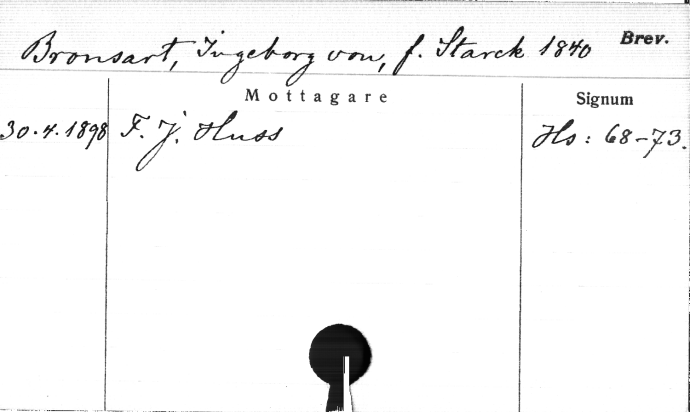 Bronsart, Ingeborg von, f. Starck 1840 Brev.
Mottagare Signum
30.4.1898 F. J. Huss Hs: 68-73.